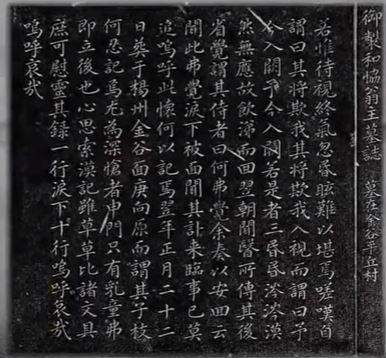 御製和恊翁主墓誌 墓在金谷平丘村
若惟待視終氣忽昏眩難以堪焉嗟嘆自
謂曰其將欺我其將欺我入視而謂曰予
今入闕予今入闕若是者三昬昬涔涔漠
然無應故飮涕而回翌朝聞醫所傳其後
省覺謂其侍者曰何弗覺余奏以安囬云
聞此弗覺淚下被面聞其訃来臨事已莫
追嗚呼此懷何以記焉翌年正月二十二
日葬于楊州金谷面庚向原而謂其子枝
何忍記焉尤為深愴者申門只有乳童弗
即立後也心思索漠記雖草草比諸文具
庶可慰靈其錄一行淚下十行嗚呼哀哉
嗚呼哀哉